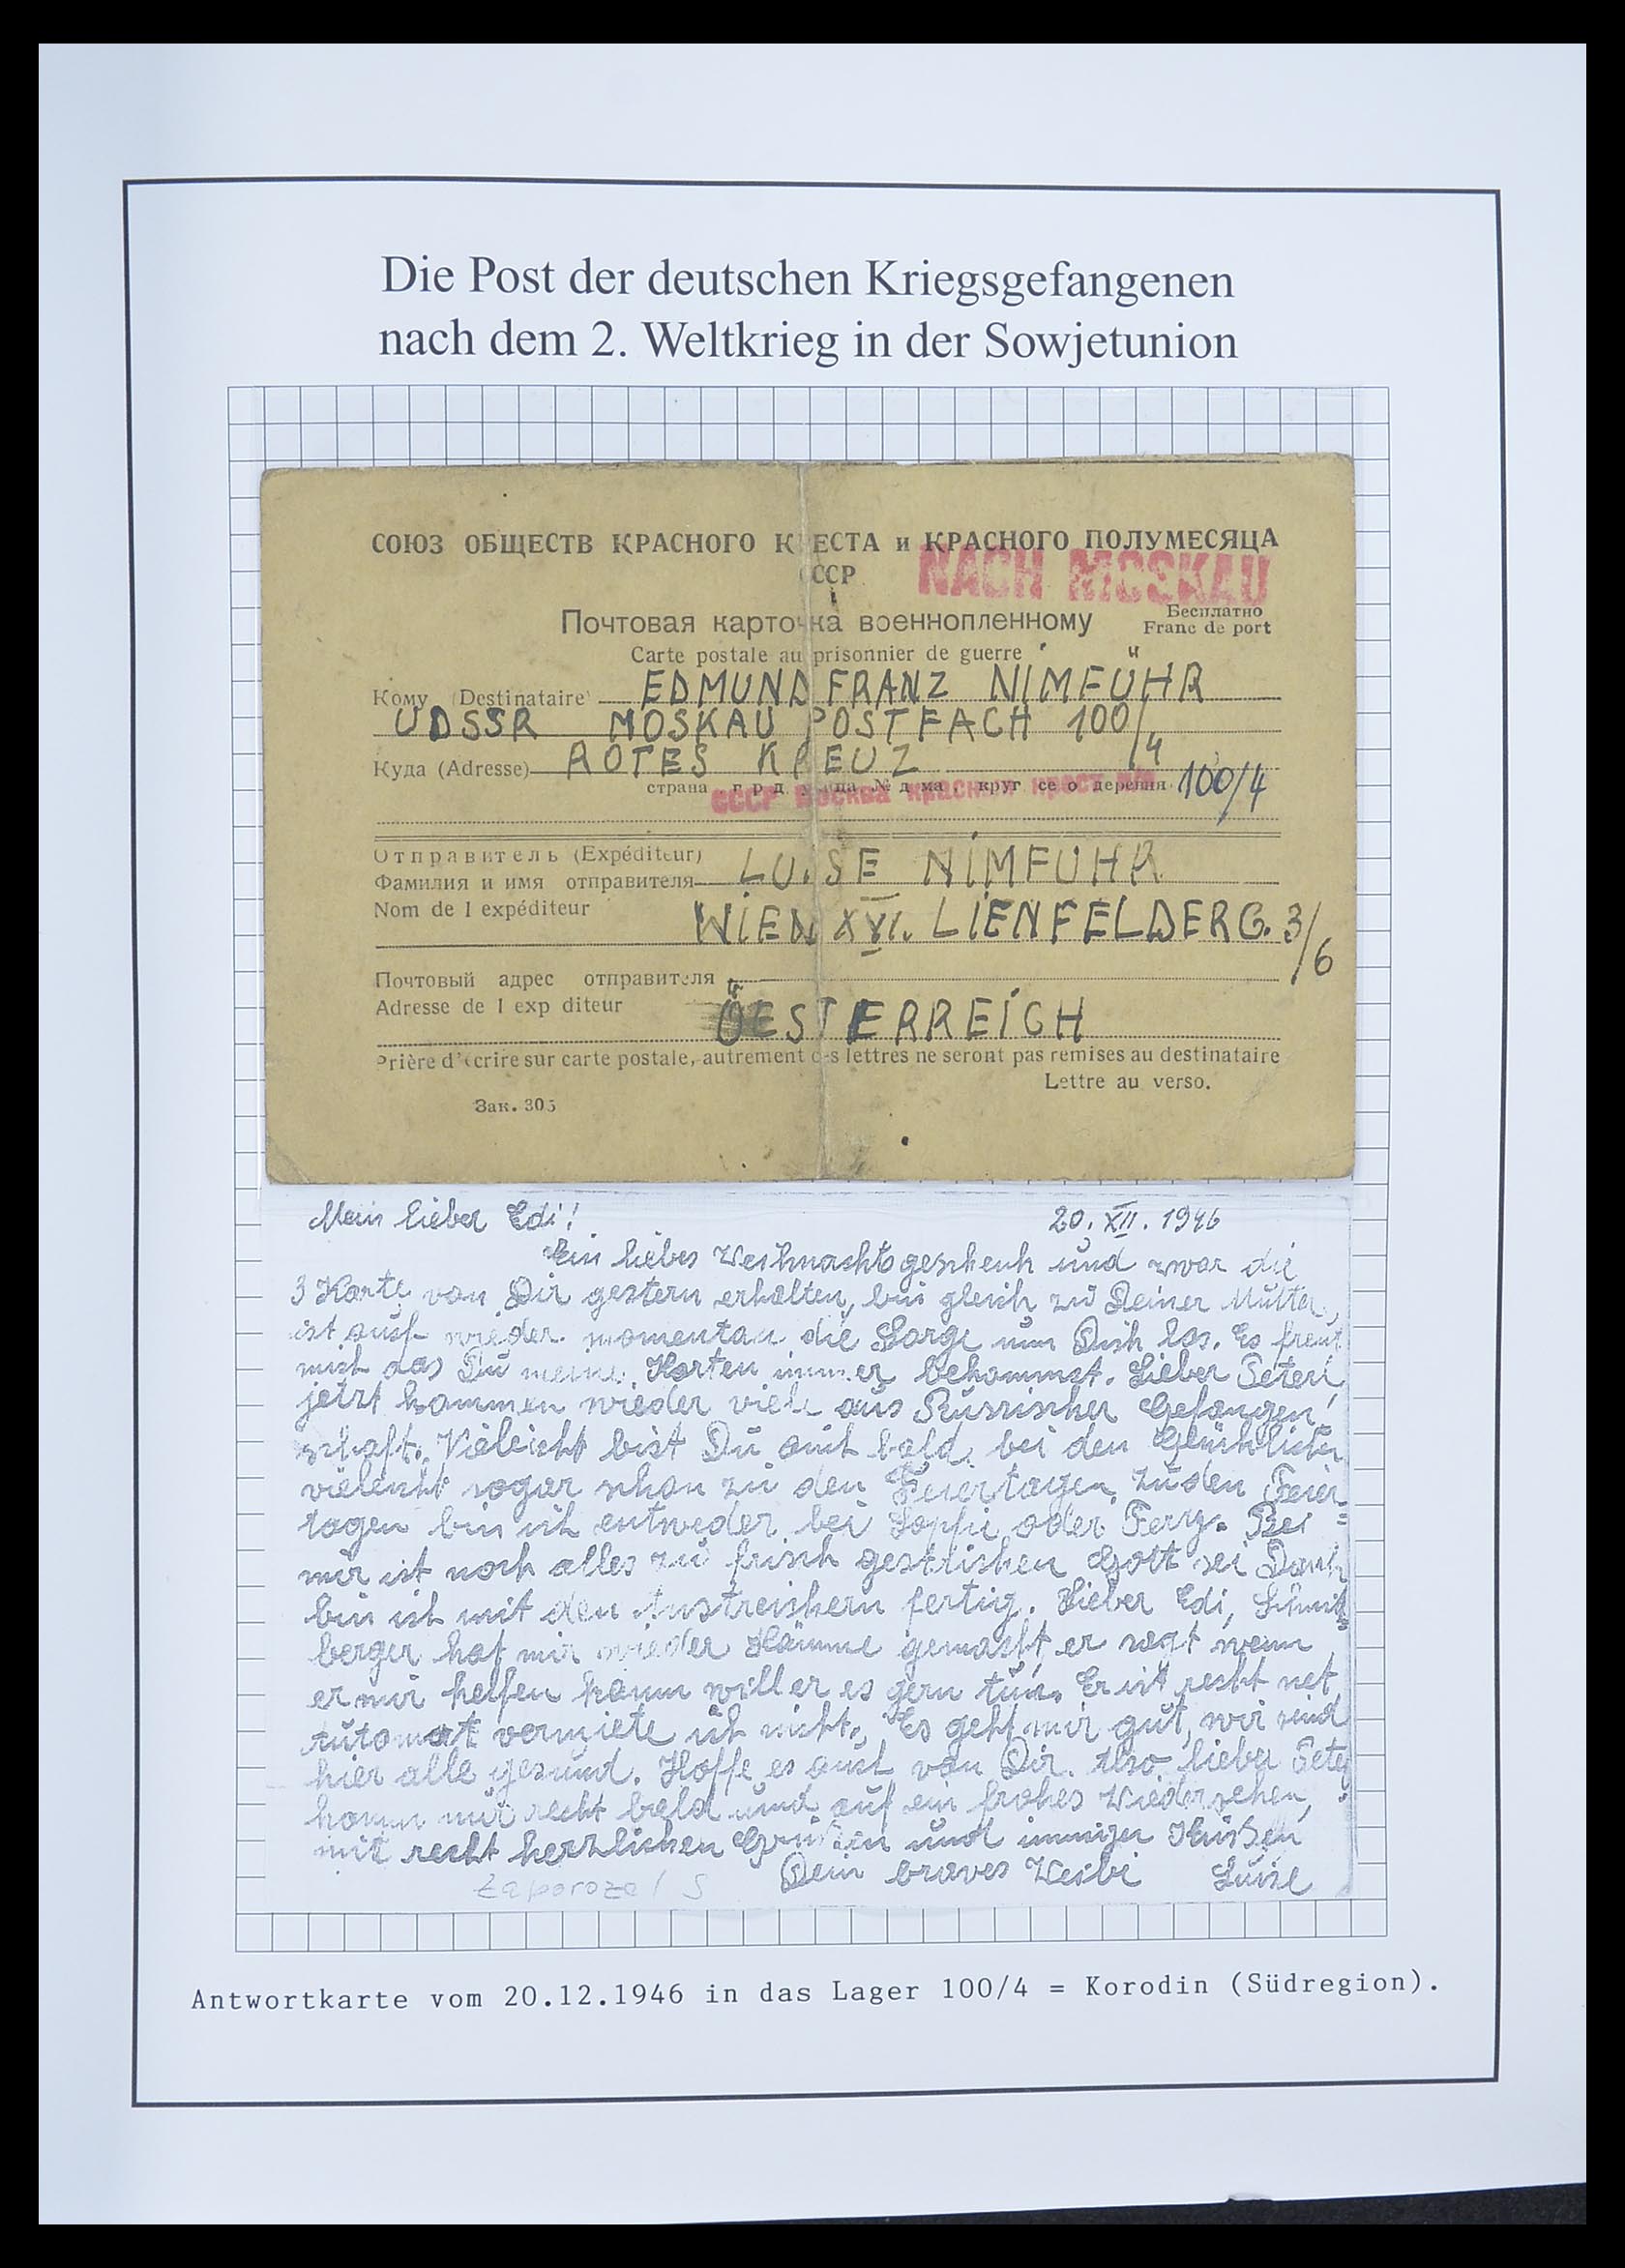 Die Post der deutschen Kriegsgefangenen
nach dem 2. Weltkrieg in der Sowjetunion
СОЮЗ ОБЩЕСТВ КРАСНОГО К ЕСТА и КРАСНОГО ПОЛУМЕСЯЦА
СССР
NACH MOSKAU
Почтовая карточка военнопленному
Бесплатно
Franc de port
Carte postale au prisonnier de guerre
Кому (Destinataire) EDMUND FRANZ NIMFÜHR
UDSSR MOSKAU POSTFACH 100/4
Куда (Adresse) ROTES KREUZ
страна
СССР Москва красный крест п/я 100/4
Отправитель (Expéditeur)
Фамилия и имя отправителя LUISE NIMFUHR
Nom de l expéditeur
WIEN XVI. LIENFELDERG. 3/6
Почтовый адрес отправителя
Adresse de l exp diteur
ÖESTERREICH
Prière d'écrire sur carte postale, autrement des lettres ne seront pas remises au destinataire
Lettre au verso.
Зак. 305
Mein lieber Edi! 20. XII. 1946
Ein liebes Weihnachtsgeschenk und zwar die
3 Karte von Dir gestern erhalten, bin gleich zu Deiner Mutter,
ist auch wieder momentan die Sorge um Dich los. Es freut
mich das Du meine Karten immer bekommst. Lieber Peterl,
jetzt kommen wieder viele aus Russischer Gefangen
schaft. Vieleicht bist Du auch bald bei den Glücklichen
vieleicht sogar schon zu den Feiertagen. Zu den Feier=
tagen bin ich entweder bei Sopfie oder Ferry. Bei
mir ist noch alles zu frisch gestrichen Gott sei Dank
bin ich mit den Anstreichern fertig. Lieber Edi,
berger hat mir wieder Kämme gemacht, er sagt wenn
er mir helfen kann will er es gern tun. Er ist recht net
Automat vermiete ich nicht. Es geht mir gut, wir sind
hier alle gesund. Hoffe es auch von Dir. Also lieber Peter
komm nur recht bald und auf ein frohes Wiedersehen,
mit recht herzlichen Grüßen und innigen Küßen
Dein braves Weibi Luise
Antwortkarte vom 20.12.1946 in das Lager 100/4 = Korodin (Südregion).